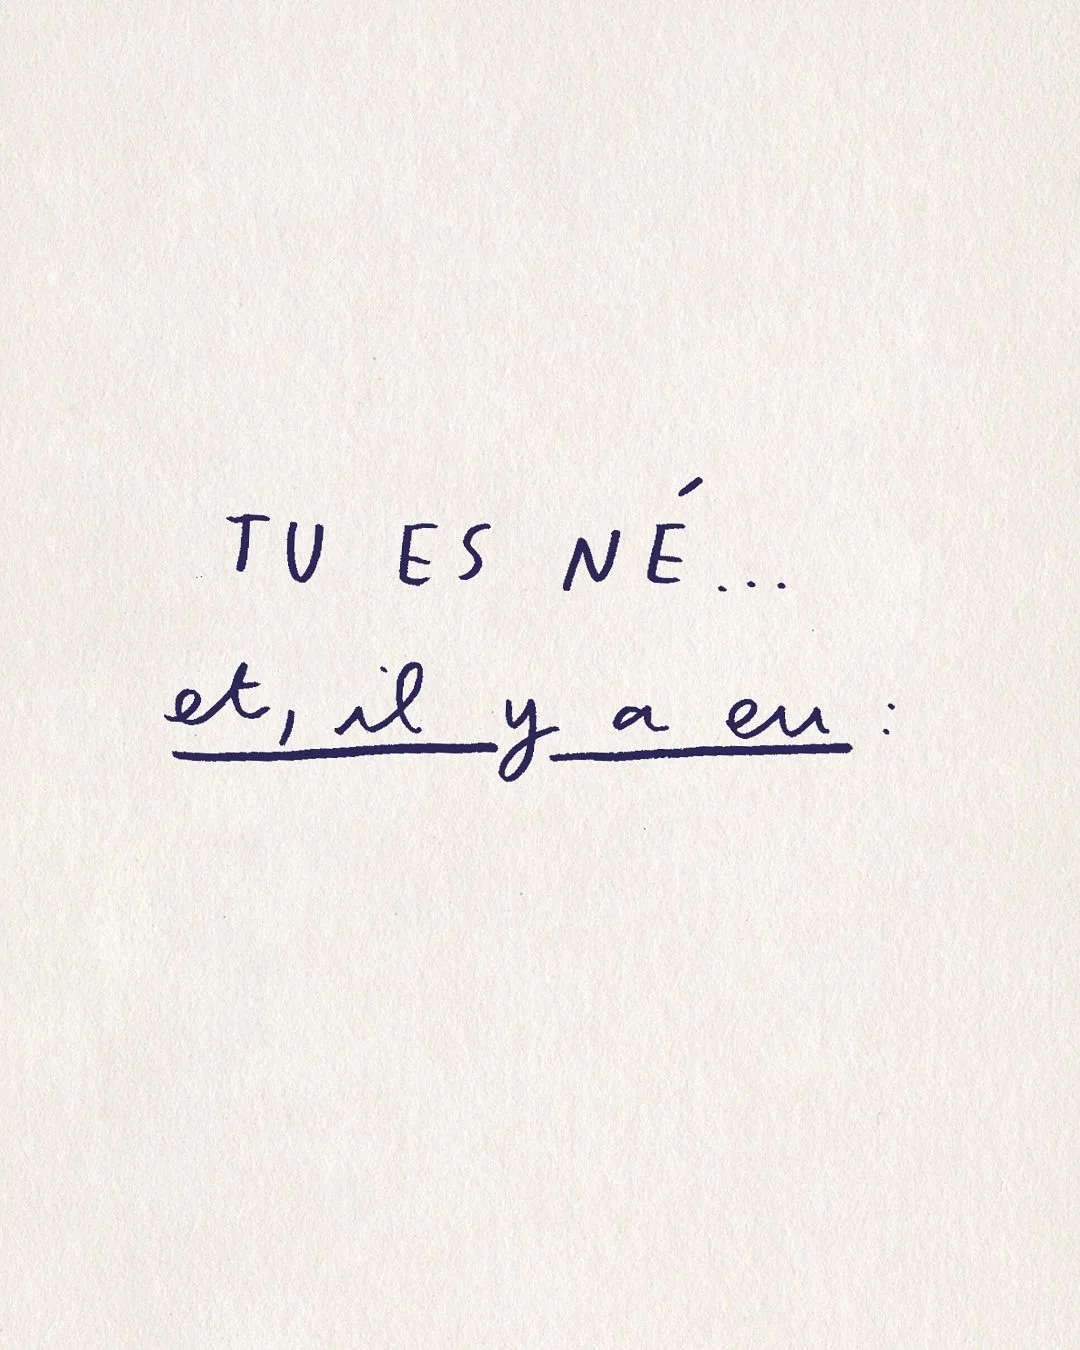 TU ES NÉ...
et, il y a eu :